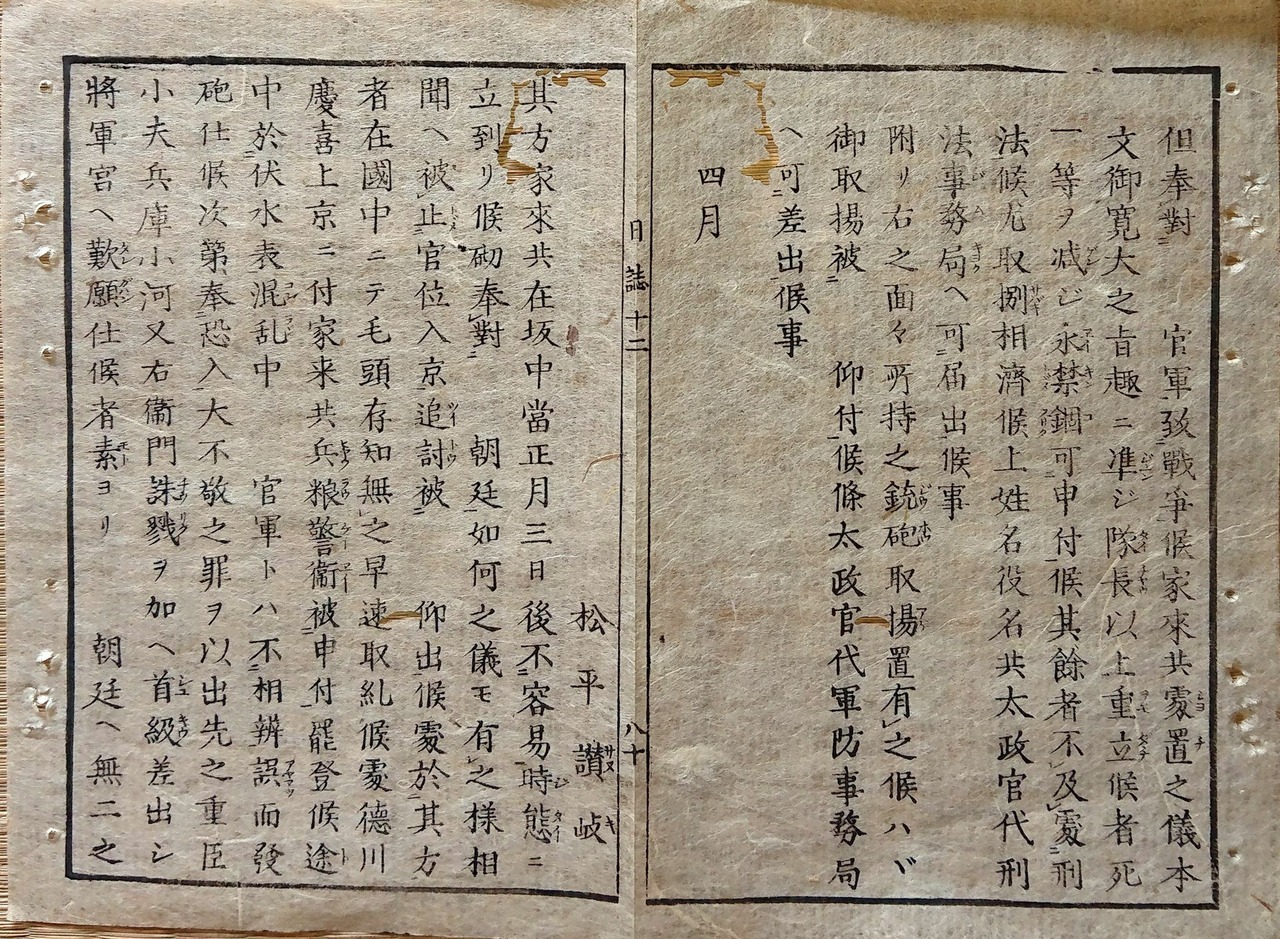 但奉對　官軍致戰爭候家來共處置之儀本
文御寛大之旨趣ニ準ジ隊長以上重立候者死
一等ヲ减ジ永禁錮可申付候其餘者不及處刑
法候尤取捌相濟候上姓名役名共太政官代刑
法事務局ヘ可届出候事
附リ右之面々所持之銃砲取揚置有之候ハヾ
御取揚被　仰付候條太政官代軍防事務局
ヘ可差出候事
四月
日誌十二
八十
松平讃岐
其方家來共在坂中當正月三日後不容易時態ニ
立到リ候砌奉對　朝廷如何之儀モ有之様相
聞ヘ被止官位入京追討被　仰出候處於其方
者在國中ニテ毛頭存知無之早速取糺候處德川
慶喜上京ニ付家来共兵粮警衞被申付罷登候途
中於伏水表混乱中　官軍トハ不相辨誤而發
砲仕候次第奉恐入大不敬之罪ヲ以出先之重臣
小夫兵庫小河又右衞門誅戮ヲ加ヘ首級差出シ
將軍宮ヘ歎願仕候者素ヨリ　朝廷ヘ無二之